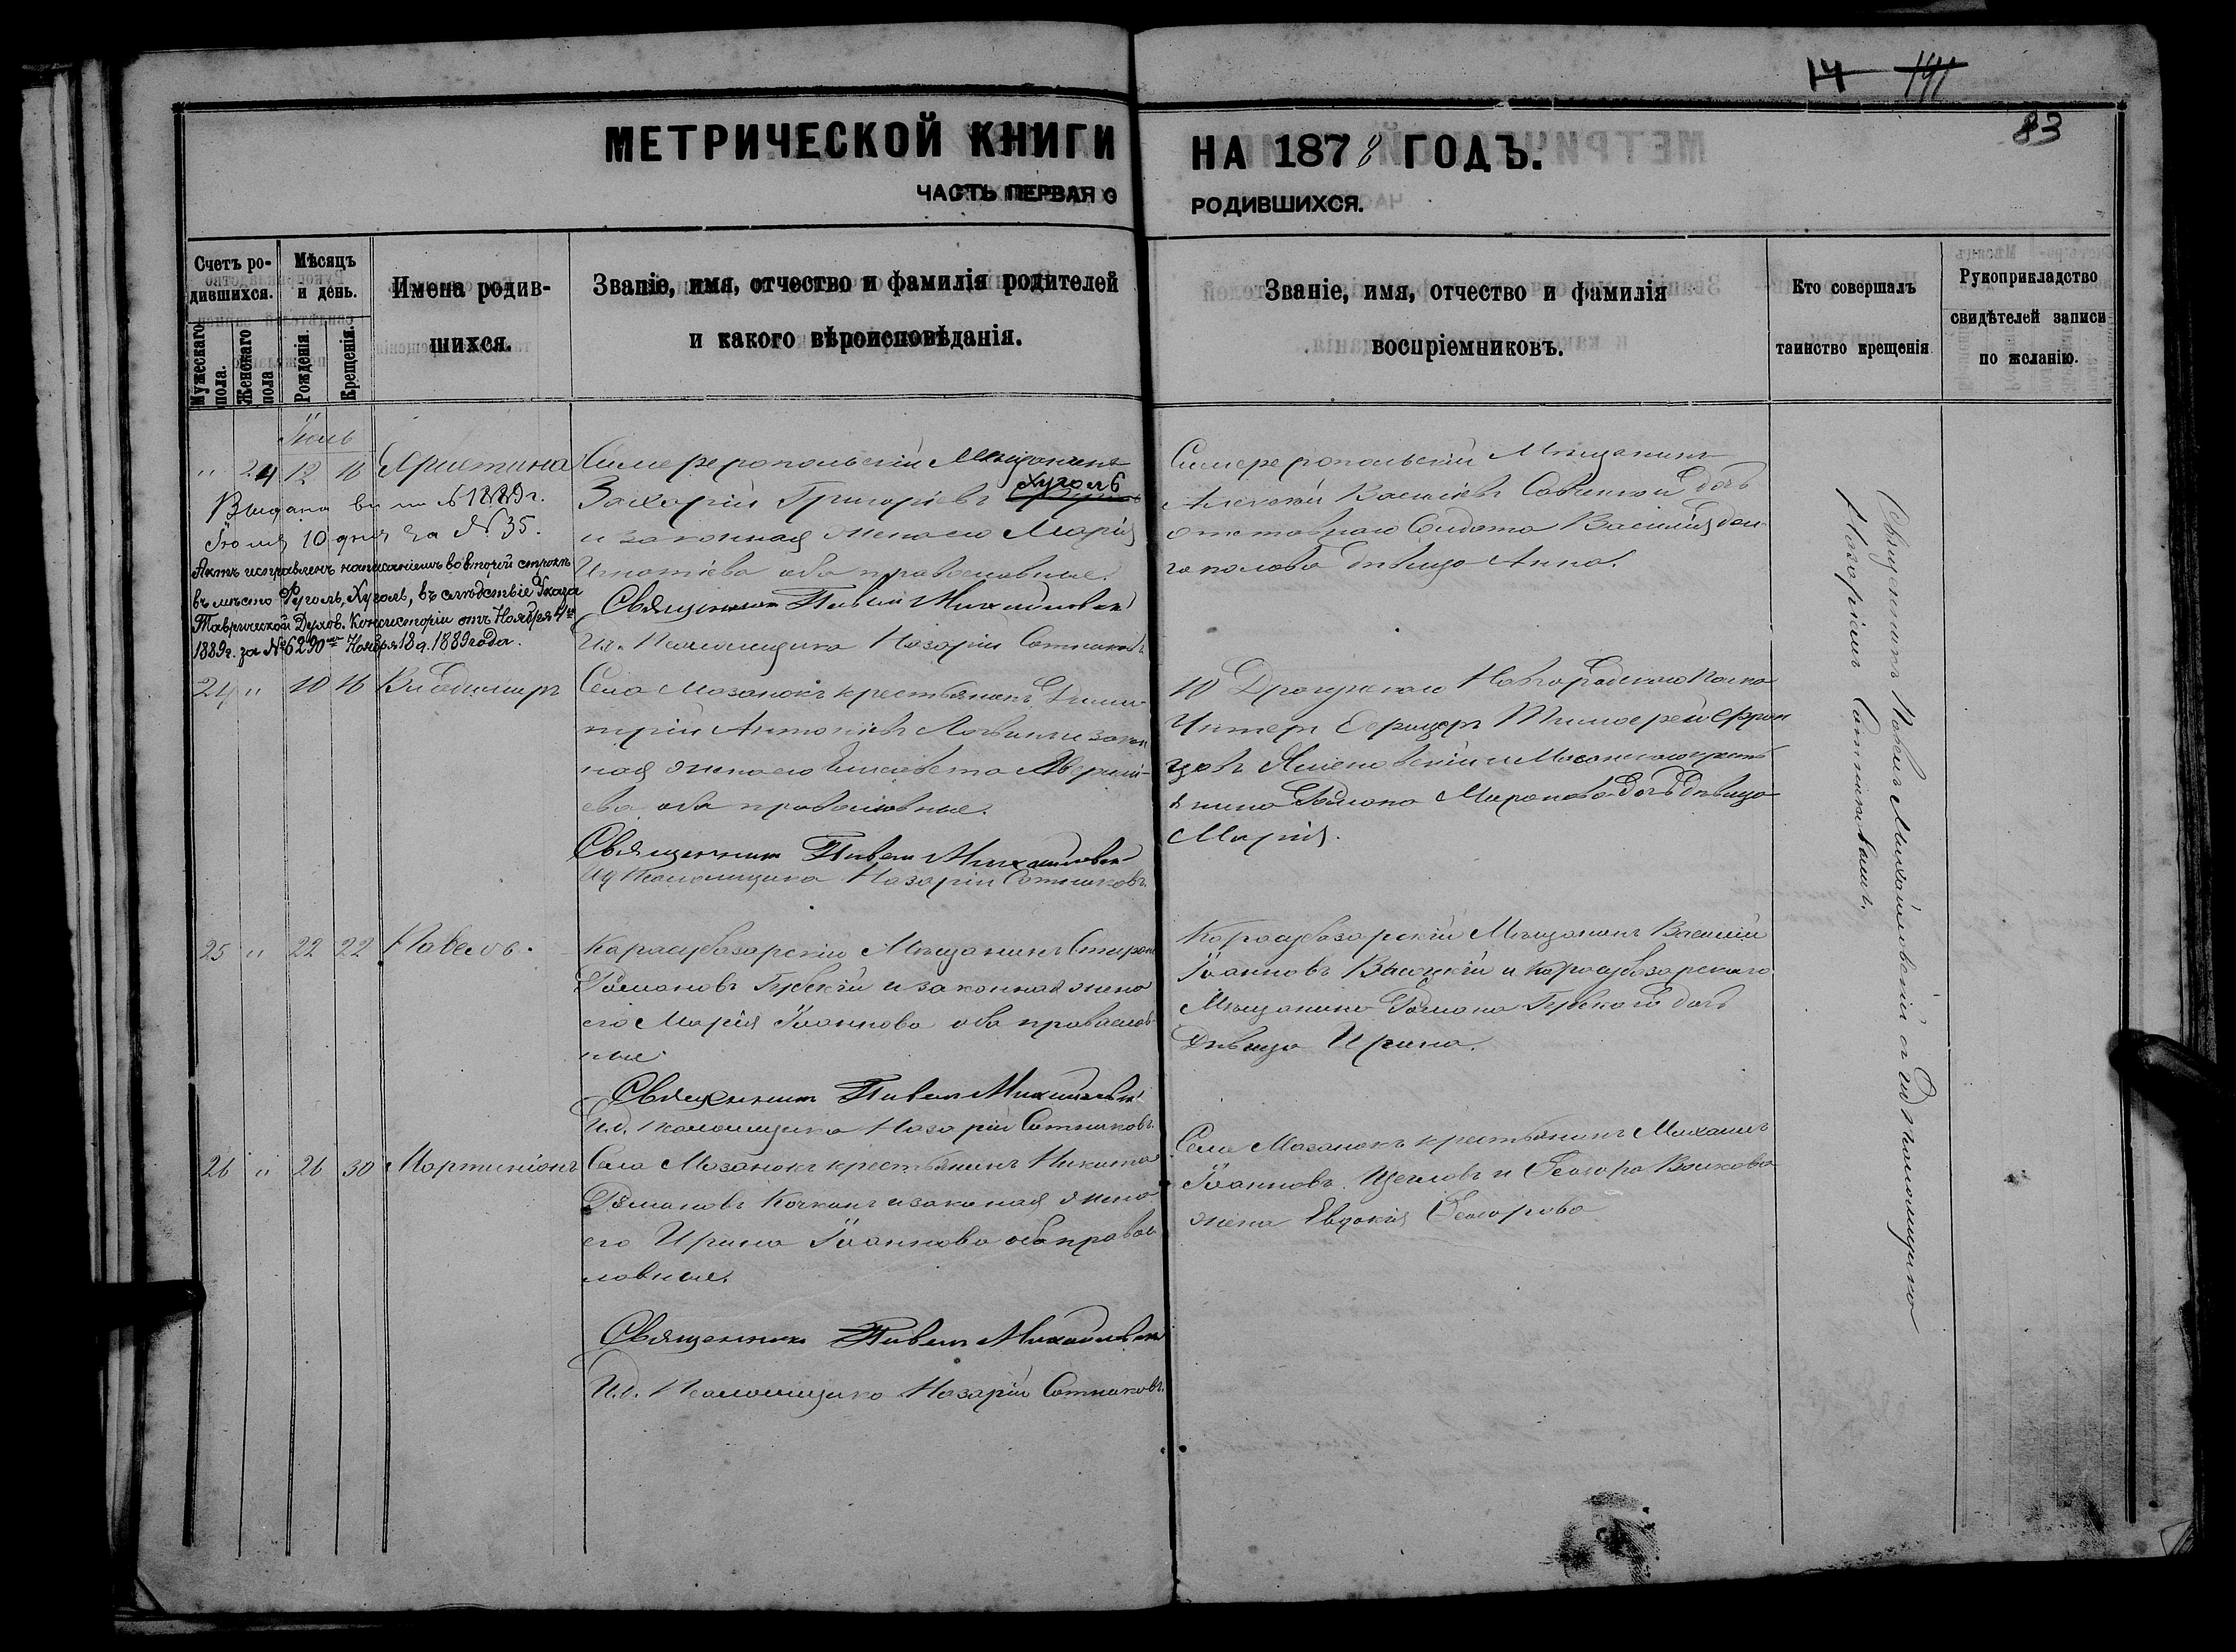 14 141
83
МЕТРИЧЕСКОЙ КНИГИ НА 1878 ГОДЪ.
ЧАСТЬ ПЕРВАЯ О РОДИВШИХСЯ.
Счетъ родившихся.
Мужескаго пола.
Женскаго пола
Мѣсяцъ и день.
Рожденія.
Крещенія.
Имена родив-
шихся.
Званіе, имя, отчество и фамилія родителей
и какого вѣроисповѣданія.
Званіе, имя, отчество и фамилія
воспріемниковъ.
Кто совершалъ
таинство крещенія
Рукоприкладство
свидѣтелей записи
по желанію.
Іюль
" 24 12 16 Христина
Симферопольскій Мѣщанинъ
Захарій Григоріевъ Хуголь
и законная жена его Марія
Игнатіева оба православные.
Священникъ Павелъ Михайловскій
И.д. Псаломщика Назарій Сотниковъ
Симферопольскій Мѣщанинъ
Алексѣй Васильевъ Савицкій дочь
отставнаго Солдата Василія
дѣвица Анна.
Выдана 1889 г.
Іюля 10 дня за № 35.
Актъ исправленъ написаніемъ во второй строкѣ
въ мѣсто Фуголь, Хуголь, въ слѣдствіе Указа
Таврической Духов. Консисторіи отъ Ноября
1889 г. за № 6290 Ноября 18 д. 1889 года.
24 " 10 16 Владимиръ
Села Мазанокъ крестьянинъ Дими-
трій Антоніевъ и закон
ная жена его Елисавета Аверкі-
ева оба православные.
Священникъ Павелъ Михайловскій
Ид Псаломщика Назарій Сотниковъ.
10 Драгунскаго Новгородскаго Полка
Унтеръ Офицеръ Тимофей
крест
янина Романа Миронова дочь дѣвица
Марія.
25 " 22 22 Павелъ.
Карасубазарскій Мѣщанинъ Спиридонъ
Романовъ Гурскій и законная жена
его Марія Іоаннова оба православ
ные
Священникъ Павелъ Михайловскій
И.д. Псаломщика Назарій Сотниковъ.
Карасубазарскій Мѣщанинъ Василій
Іоанновъ Высоцкій и Карасубазарскаго
Мѣщанина Романа Гурскаго дочь
Дѣвица Ирина.
26 " 26 30 Мартиніанъ
Села Мазанокъ крестьянинъ Никита
Романовъ и законая жена
его Ирина Іоаннова оба правос
лавные.
Священникъ Павелъ Михайловскій
И.д. Псаломщика Назарій Сотниковъ.
Села Мазанокъ крестьянинъ Михаилъ
Іоанновъ Щегловъ и Ѳеодора Волкова
жена Евдокія Ѳеодорова
Священникъ Павелъ Михайловскій съ ид псаломщика
Назаріемъ Сотниковымъ.